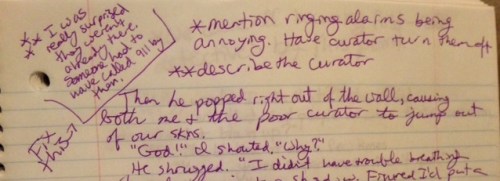 * * I was
* really surprised
they weren't
already here.
Someone had to
have called 911 by
then.
Fix
this →
* mention ringing alarms being
annoying. Have curator turn them off
** describe the curator
Then he popped right out of the wall, causing
both me & the poor curator to jump out
of our skins.
"God!" I shouted. "Why?"
He shrugged. "I didn't have trouble breathing
Figured I'd put a